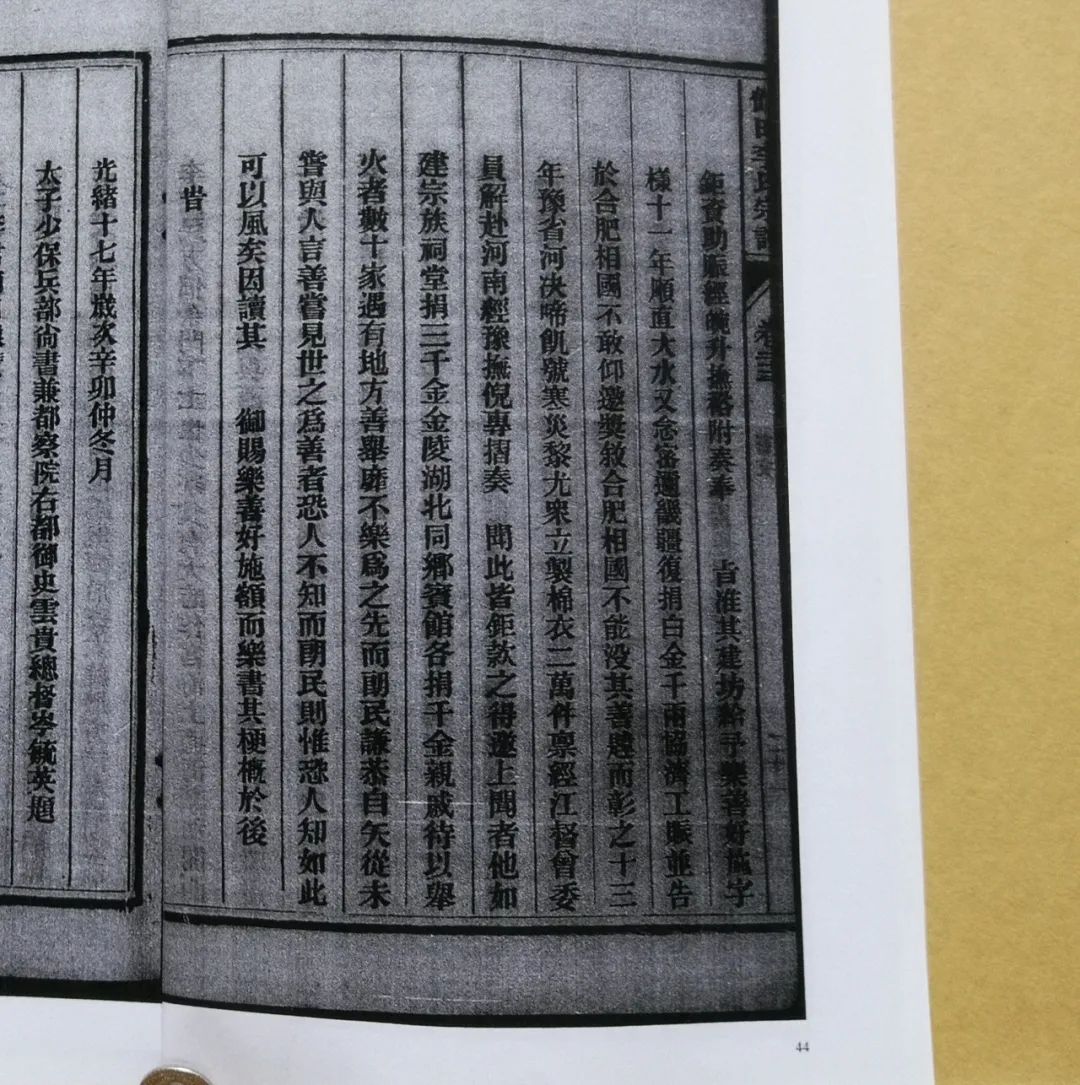 李氏宗譜
卷三
鉅資助賑經皖升撫裕附奏奉 旨准其建坊給予樂善好施字
樣十一年顺直大水又念密邇畿疆復捐白金千兩協濟工賑並告
於合肥相國不敢仰邀獎敘合肥相國不能没其善遽而彰之十三
年豫省河决啼飢號寒災黎尤眾立製棉衣二萬件禀經江督曾委
員解赴河南經豫撫倪專摺奏 聞此皆鉅款之得邀上聞者他如
建宗族祠堂捐三千金金陵湖北同鄉賓館各捐千金親戚待以舉
火者數十家遇有地方善舉靡不樂爲之先而朗民謙恭自矢從未
嘗與人言善嘗見世之爲善者恐人不知而朗民則惟恐人知如此
可以風矣因讀其 御賜樂善好施額而樂書其梗概於後
旹
光緒十七年歲次辛卯仲冬月
太子少保兵部尚書兼都察院右都御史雲貴總督岑毓英題
44